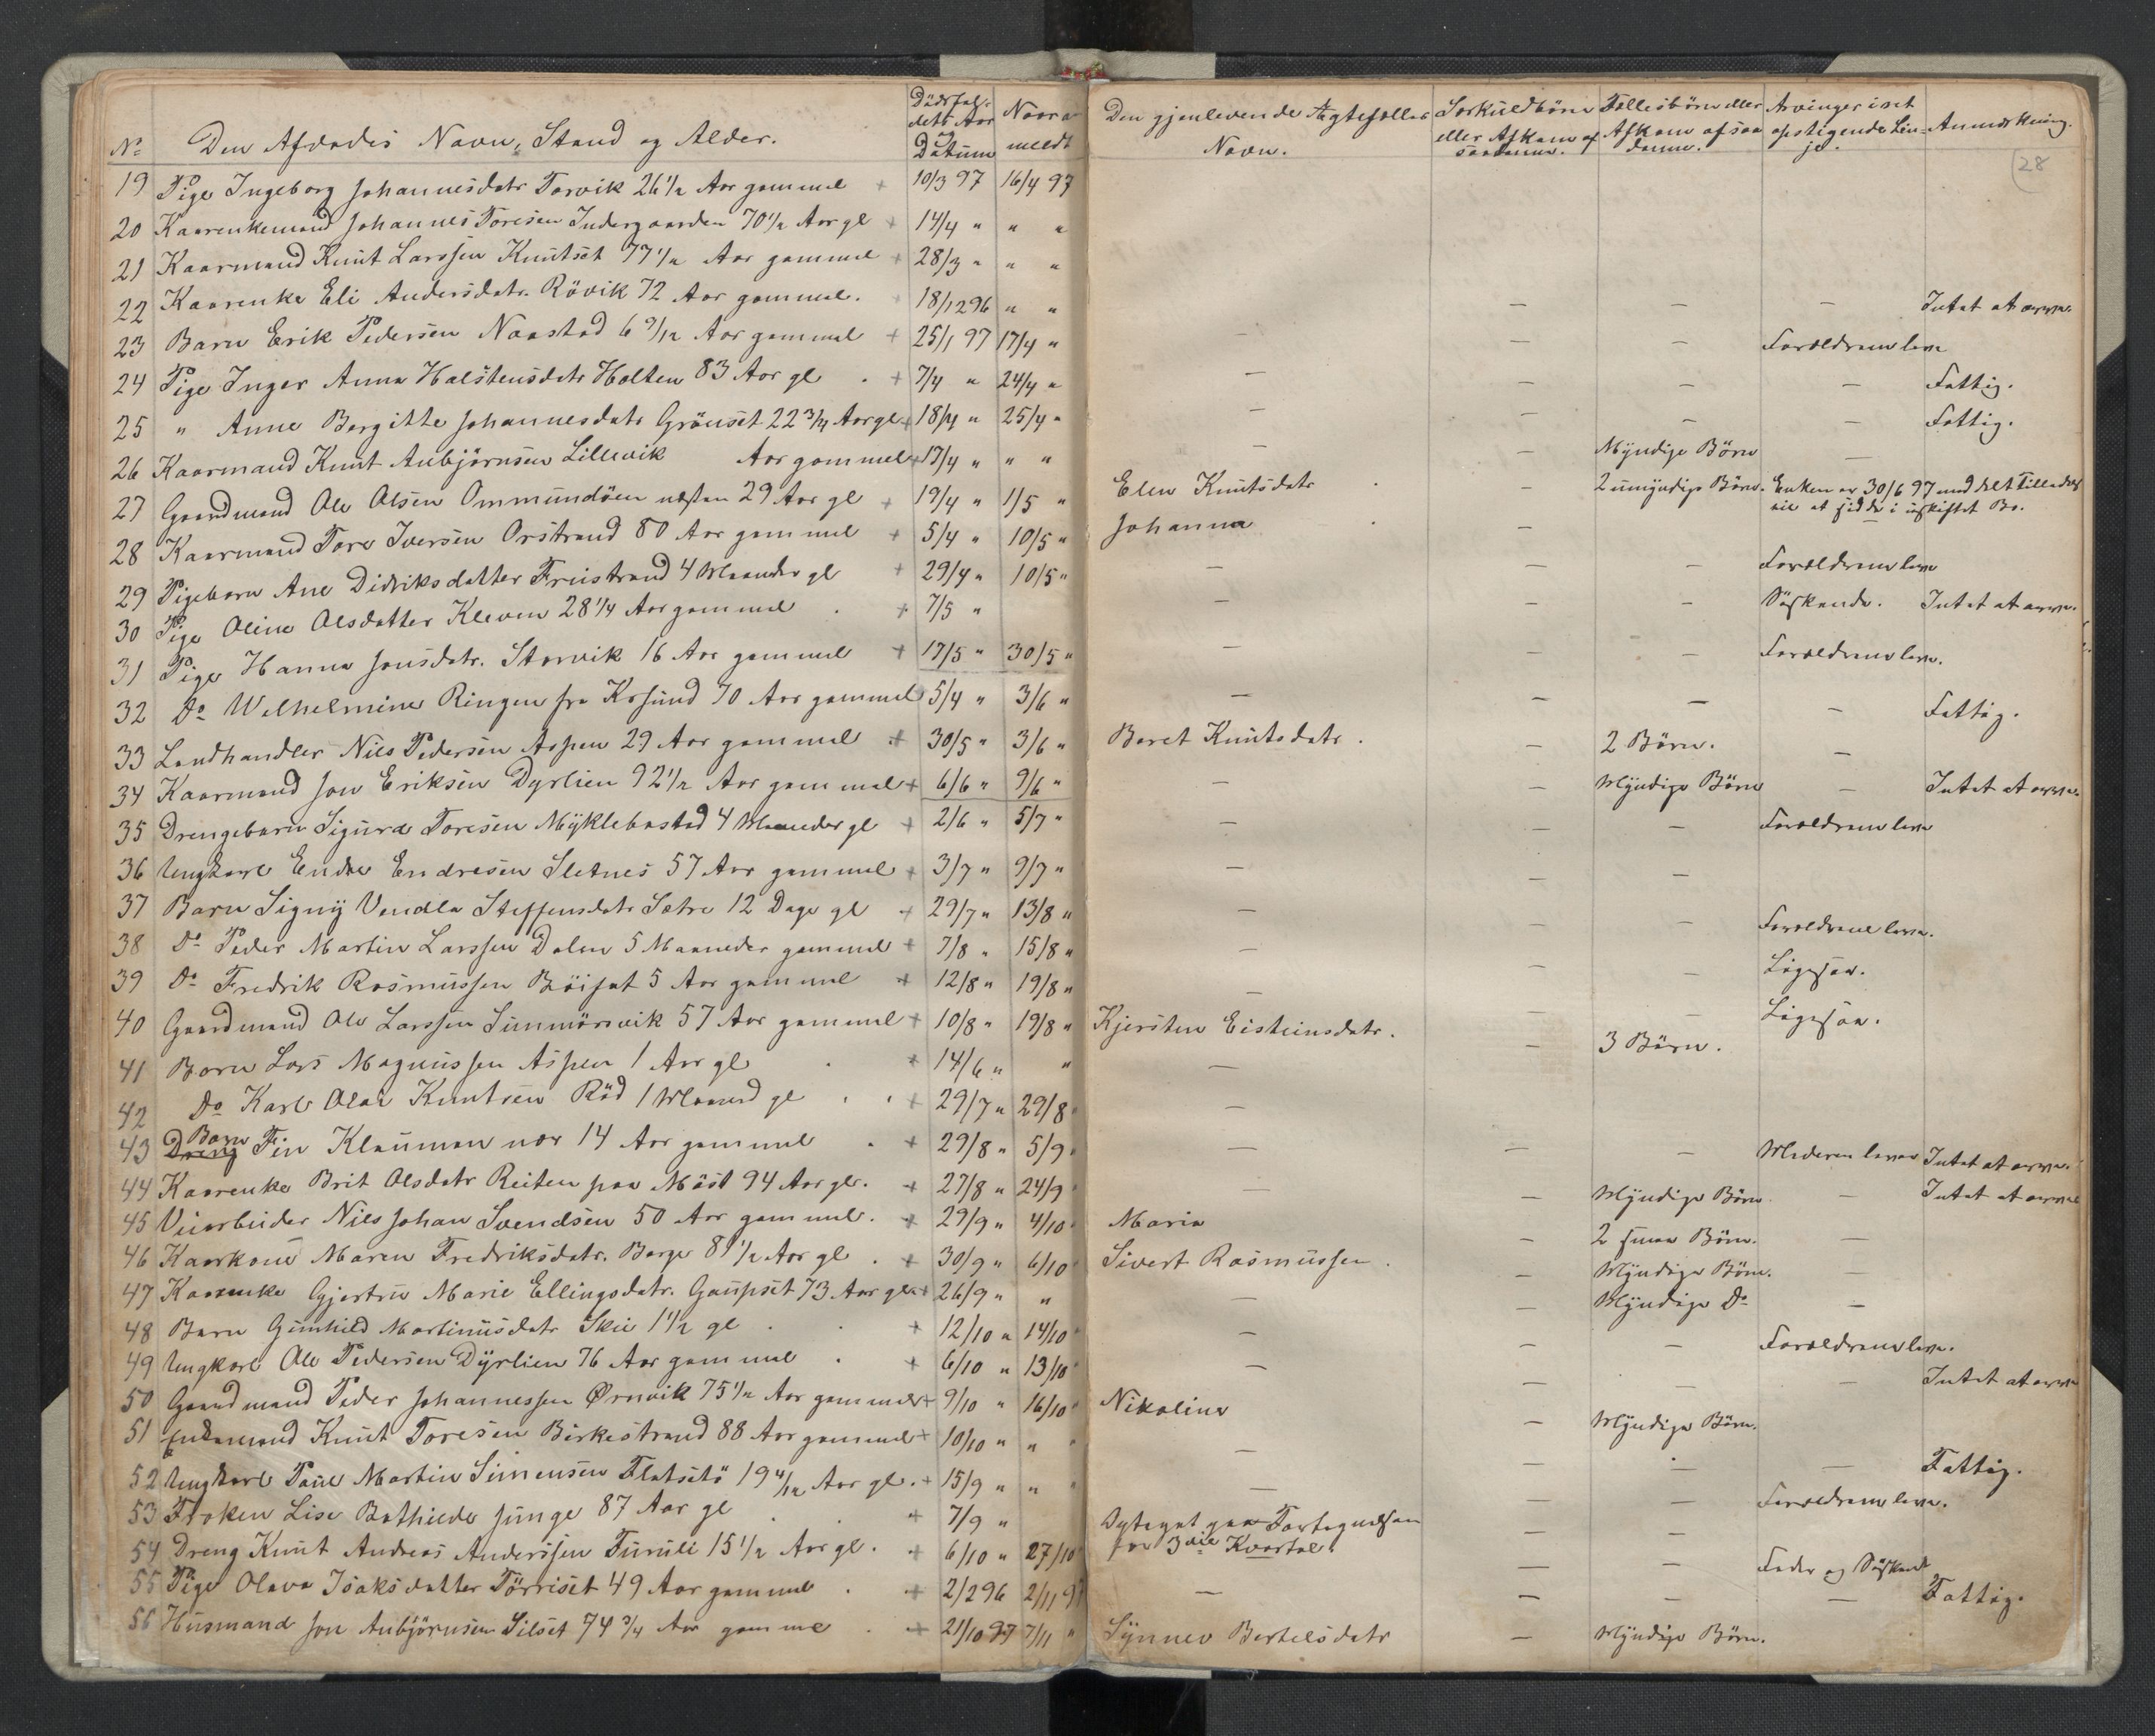 Den Afdødes Navn, Stand og Alder. Dødsfaldets Aar og Datum Naar anmeldt Den gjenlevende Ægtefælles Navn. Særkuldbörn eller Afkom af saadanne. Fællesbörn eller Afkom af saadanne. Arvinger i ret opstigende Linje. Anmærkning.
28
19 Pige Ingeborg Johannesdatr Torvik 26 1/2 Aar gammel + 10/3 97 16/4 97
20 Kaarenkemand Johannes Toresen Indergaarden 70 1/2 Aar gl + 14/4 " " "
21 Kaarmand Knut Larssen Knutset 77 1/2 Aar gammel + 28/3 " " "
22 Kaarenke Eli Andersdatr. Rövik 72 Aar gammel. 18/12 96 " " — — — Intet at arve.
23 Barn Erik Pedersen Naastad 6 9/12 Aar gammel + 25/1 97 17/4 " — — — Forældrene leve
24 Pige Inger Anna Halstensdatr Holten 83 Aar gl . + 7/4 " 24/4 " — — — — Fattig.
25 " Anne Bergitte Johannesdatr Grönset 22 3/4 Aar gl + 18/4 " 25/4 " — — — — Fattig.
26 Kaarmand Knut Anbjörnsen Lillevik Aar gammel + 17/4 " " " — — Myndige Börn —
27 Gaardmand Ole Olsen Ommundöen næsten 29 Aar gl + 19/4 " 1/5 " Elen Knutsdatr . — 2 umyndige Börn. Enken er 30/6 97 meddelt Tilladelse
til at sidde i uskiftet Bo.
28 Kaarmand Tore Iversen Orstrand 80 Aar gammel + 5/4 " 10/5 " Johanna . —
29 Pigebarn Ane Didriksdatter Freistrand 4 Maaneder gl + 29/4 " 10/5 " — — — Forældrene leve
30 Pige Oline Olsdatter Kleven 28 1/4 Aar gammel . + 7/5 " — — — Söskende. Intet at arve.
31 Pige Hanna Jonsdatr. Storvik 16 Aar gammel + 17/5 " 30/5 " — — — Forældrene leve.
32 Do Wilhelmine Ringen fra Krsund 70 Aar gammel 5/4 " 3/6 " — — — — Fattig.
33 Landhandler Nils Pedersen Aspen 29 Aar gammel + 30/5 " 3/6 " Beret Knutsdatr. — 2 Börn. —
34 Kaarmand Jon Eriksen Dyrlien 92 1/2 Aar gammel + 6/6 " 9/6 " — — Myndige Börn — Intet at arve.
35 Drengebarn Sigurd Toresen Myklebostad 4 Maaneder gl + 2/6 " 5/7 " — — — Forældrene leve
36 Ungkarl Endre Endresen Sletnes 57 Aar gammel + 3/7 " 9/7 " — — —
37 Barn Signy Vendla Steffensdatr Sætre 12 Dage gl + 29/7 " 13/8 " — — — Forældrene leve.
38 Do Peder Martin Larssen Dalen 5 Maaneder gammel + 7/8 " 15/8 " — — — Ligesaa.
39 Do Fredrik Rasmussen Böiset 5 Aar gammel + 12/8 " 19/8 " — — — Ligesaa.
40 Gaardmand Ole Larssen Simmörsvik 57 Aar gammel + 10/8 " 19/8 " Kjersten Eisteinsdatr. — 3 Börn.
41 Barn Lars Magnussen Aspen 1 Aar gl . + 14/6 " " —
42 Do Karl Olai Knutsen Röd 1 Maaned gl . . + 29/7 " 29/8 " —
43 Barn Fin Klauman nær 14 Aar gammel . + 29/8 " 5/9 " — — — Moderen lever Intet at arve.
44 Kaarenke Brit Olsdatr Reiten paa Möst 94 Aar gl. + 27/8 " 24/9 " — — Myndige Börn — Intet at arve
45 Veiarbeider Nils Johan Svendsen 50 Aar gammel. + 29/9 " 4/10 " Maria — 2 smaa Börn. —
46 Kaarkone Maren Fredriksdatr. Berge 81 1/2 Aar gl . + 30/9 " 6/10 " Sivert Rasmussen . — Myndige Börn. —
47 Kaarenke Gjertru Marie Ellingsdatr. Gaupset 73 Aar gl + 26/9 " " — — Myndige Do —
48 Barn Gunhild Martinusdatr Skei 1 1/2 gl . . + 12/10 " 14/10 " — — — Forældrene leve.
49 Ungkarl Ole Pedersen Dyrlien 76 Aar gammel . + 6/10 " 13/10 " — — — — Intet at arve
50 Gaardmand Peder Johannessen Ørnvik 75 1/2 Aar gammel + 9/10 " 16/10 " Nikoline — Myndige Börn.
51 Enkemand Knut Toresen Birkestrand 88 Aar gammel + 10/10 " " " — — — Fattig.
52 Ungkarl Paul Martin Simensen Flatsetö 19 4/12 Aar gl. + 15/9 " " " — — — Forældrene leve.
53 Frøken Lise Bothilde Junge 87 Aar gl . . + 7/9 " Optaget paa Fortegnelsen — —
for 3die Kvartal.
54 Dreng Knut Andreas Anderssen Furuli 15 1/2 Aar gl. + 6/10 " 27/10 — — Fader og Söskende
55 Pige Olava Isaksdatter Törriset 49 Aar gammel . + 2/2 96 2/11 97 — — — — Fattig.
56 Husmand Jon Anbjörnsen Silset 74 3/4 Aar gammel . + 21/10 97 7/11 " Synnev Bertelsdatr — Myndige Börn.